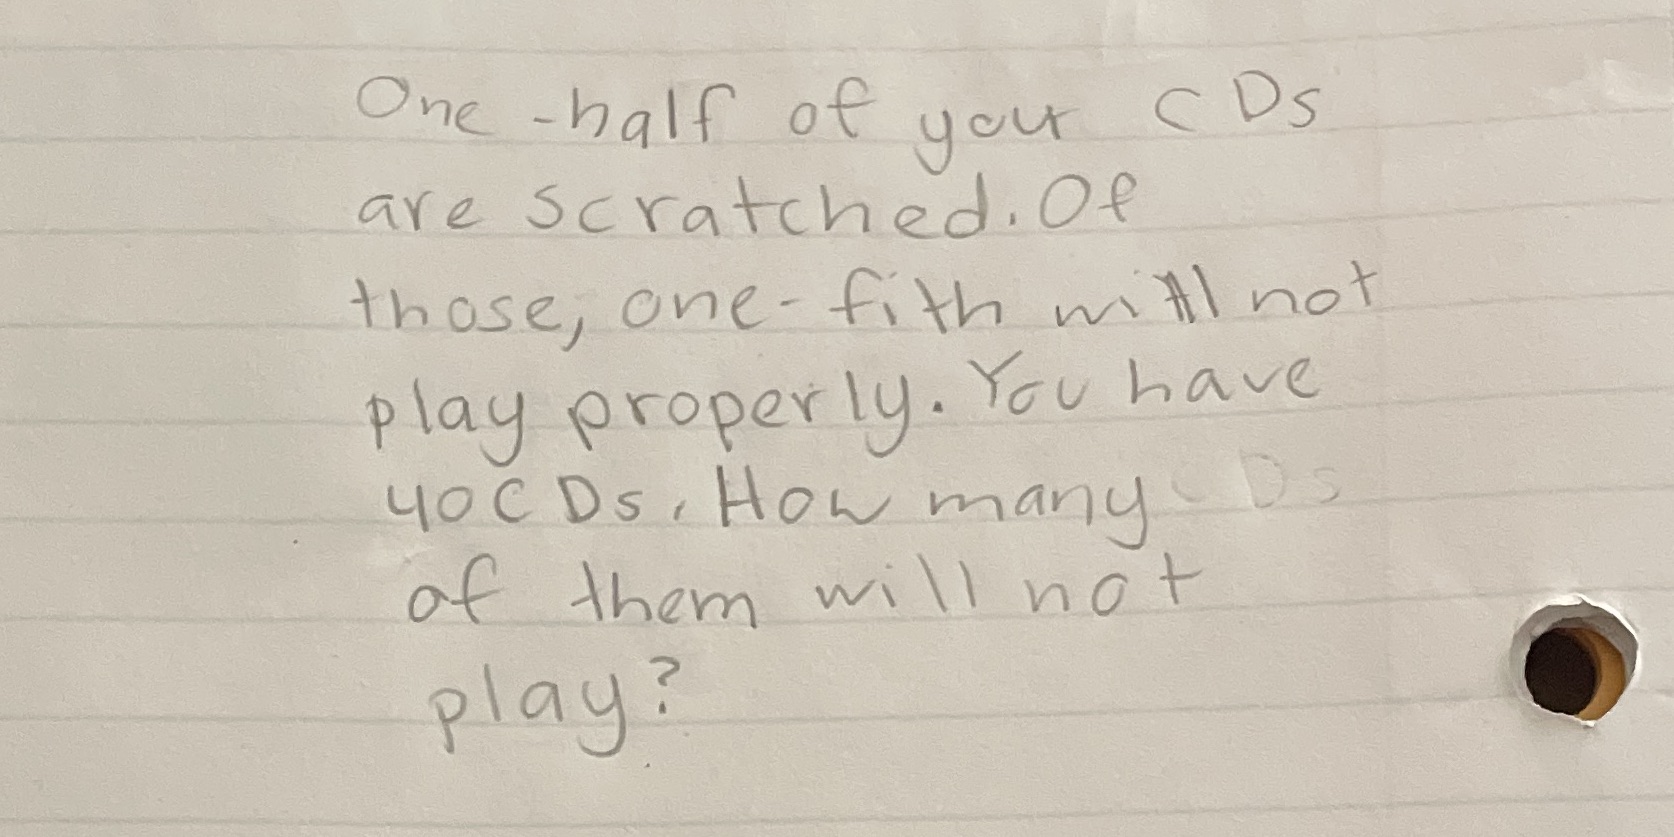 One-half of your CDs
are scratched. Of
those, one-fith will not
play properly. You have
40 CDs. How many CDs
of them will not
play?